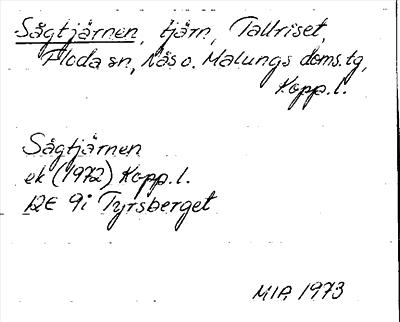 Sågtjärnen, tjärn, Tallriset,
Floda sn, Nås o. Malungs doms.tg,
Kopp.l.
Sågtjärnen
ek (1972) Kopp.l.
12E 9i Tyrsberget
MIA 1973